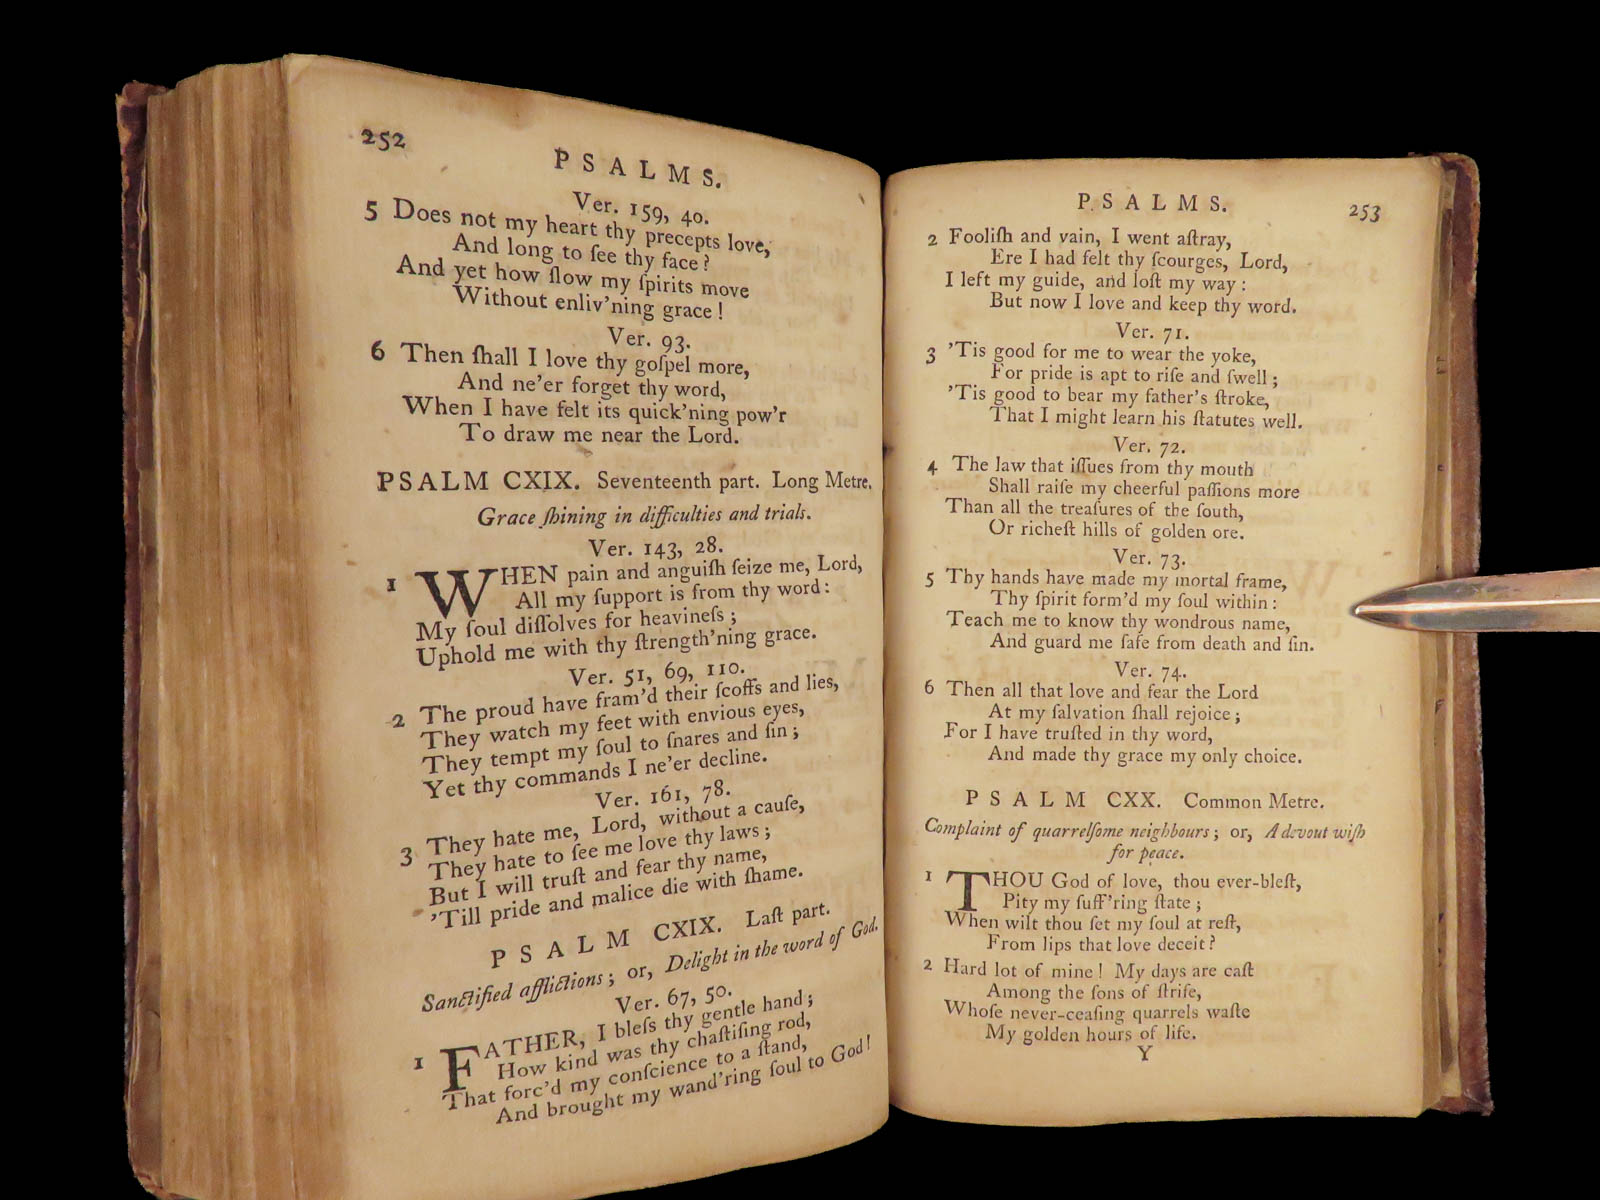 252
PSALMS.
Ver. 159, 40.
5 Does not my heart thy precepts love,
And long to ſee thy face?
And yet how ſlow my ſpirits move
Without enliv'ning grace!
Ver. 93.
6 Then ſhall I love thy goſpel more,
And ne'er forget thy word,
When I have felt its quick'ning pow'r
To draw me near the Lord.
PSALM CXIX. Seventeenth part. Long Metre.
Grace ſhining in difficulties and trials.
Ver. 143, 28.
1 WHEN pain and anguiſh ſeize me, Lord,
All my ſupport is from thy word:
My ſoul diſſolves for heavineſs;
Uphold me with thy ſtrength'ning grace.
Ver. 51, 69, 110.
2 The proud have fram'd their ſcoffs and lies,
They watch my feet with envious eyes,
They tempt my ſoul to ſnares and ſin;
Yet thy commands I ne'er decline.
Ver. 161, 78.
3 They hate me, Lord, without a cauſe,
They hate to ſee me love thy laws;
But I will truſt and fear thy name,
'Till pride and malice die with ſhame.
PSALM CXIX. Laſt part.
Sanctified afflictions; or, Delight in the word of God.
Ver. 67, 50.
1 FATHER, I bleſs thy gentle hand;
How kind was thy chaſtiſing rod,
That forc'd my conſcience to a ſtand,
And brought my wand'ring ſoul to God!
PSALMS.
253
2 Fooliſh and vain, I went aſtray,
Ere I had felt thy ſcourges, Lord,
I left my guide, and loſt my way:
But now I love and keep thy word.
Ver. 71.
3 'Tis good for me to wear the yoke,
For pride is apt to riſe and ſwell;
'Tis good to bear my father's ſtroke,
That I might learn his ſtatutes well.
Ver. 72.
4 The law that iſſues from thy mouth
Shall raiſe my cheerful paſſions more
Than all the treaſures of the ſouth,
Or richeſt hills of golden ore.
Ver. 73.
5 Thy hands have made my mortal frame,
Thy ſpirit form'd my ſoul within:
Teach me to know thy wondrous name,
And guard me ſafe from death and ſin.
Ver. 74.
6 Then all that love and fear the Lord
At my ſalvation ſhall rejoice;
For I have truſted in thy word,
And made thy grace my only choice.
PSALM CXX. Common Metre.
Complaint of quarrelſome neighbours; or, A devout wiſh
for peace.
1 THOU God of love, thou ever-bleſt,
Pity my ſuff'ring ſtate;
When wilt thou ſet my ſoul at reſt,
From lips that love deceit?
2 Hard lot of mine! My days are caſt
Among the ſons of ſtrife,
Whoſe never-ceaſing quarrels waſte
My golden hours of life.
Y